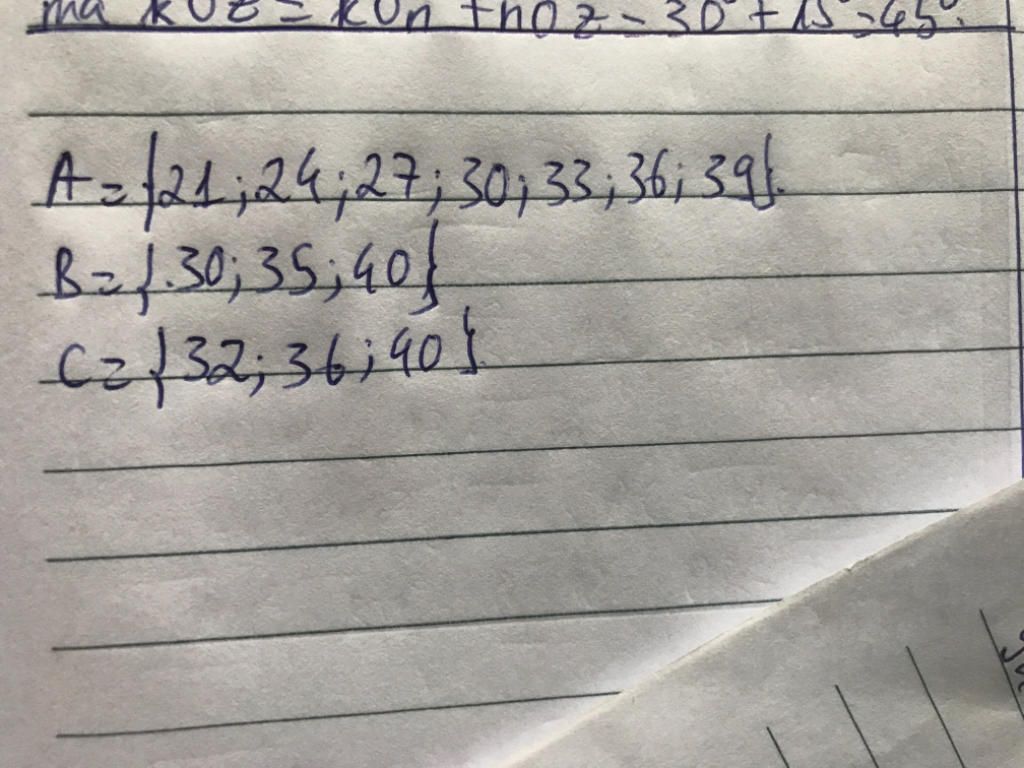 ma kOz = kOn + nOz = 30° + 15° = 45°.
A = {21; 24; 27; 30; 33; 36; 39}.
B = {.30; 35; 40}
C = {32; 36; 40}.